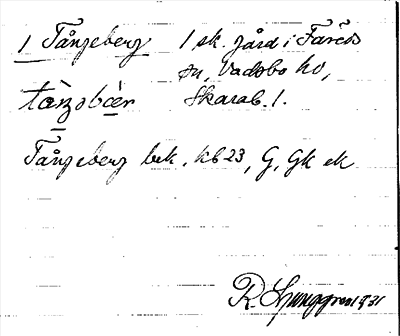 1 Tångeberg 1 sk. gård i Färeds
sn, Vadsbo hd,
tàŋsbær Skarab. l.
Tångeberg bek. kb 23, G, Gk ek
R. Ljunggren 1931